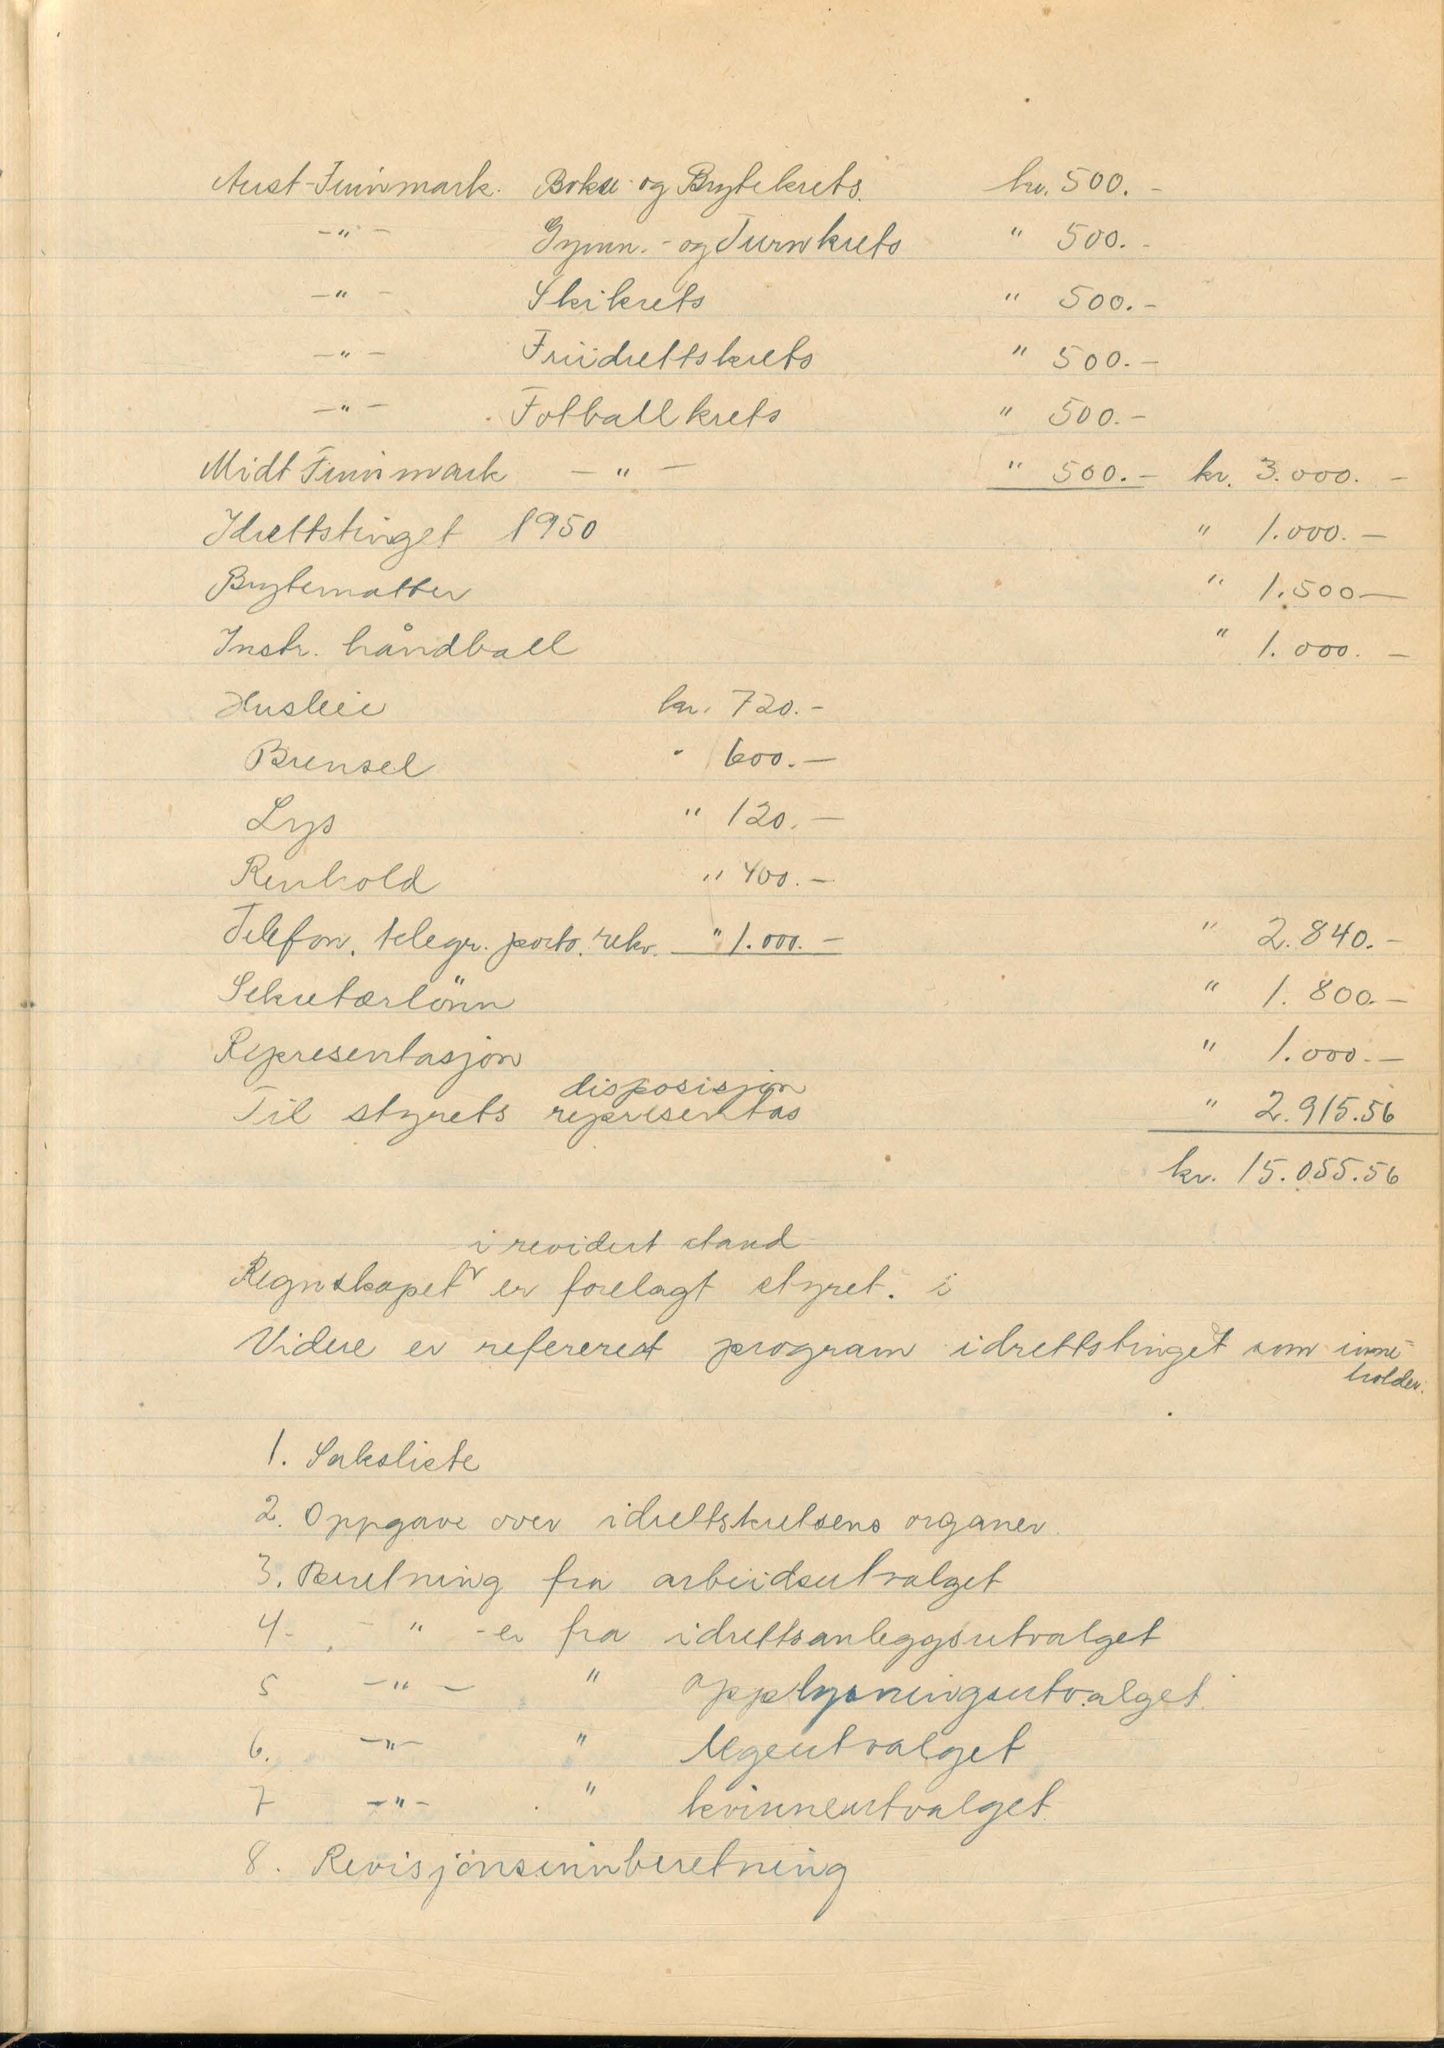 Aust-Finnmark. Bokse- og Brytekrets. kr. 500.-
-"- Gymn.- og Turnkrets " 500.-
-"- Skikrets " 500.-
-"- Friidrettskrets " 500.-
-"- Fotballkrets " 500.-
Midt Finnmark -"- " 500.- kr. 3.000.-
Idrettstinget 1950 " 1.000.-
Brytematter " 1.500-
Instr. håndball " 1.000.-
Husleie kr. 720.-
Brensel " 600.-
Lys " 120.-
Renhold " 400.-
Telefon, telegr. porto. rekv. " 1.000.- " 2.840.-
Sekretærlönn " 1.800.-
Representasjon " 1.000.-
disposisjon
Til styrets representas " 2.915.56
kr. 15.055.56
i revidert stand
Regnskapet er forelagt styret. i
Videre er referert program idrettstinget som inne-
holder.
1. Saksliste
2. Oppgave over idrettskretsens organer.
3. Beretning fra arbeidsutvalget
4- -"-er fra idrettsanleggsutvalget
5 -"- " opplysningsutvalget.
6. -"- " legeutvalget
7 -"- " kvinneutvalget.
8. Revisjonsinnberetning